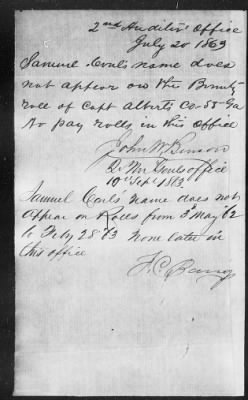 2nd Auditors Office
July 20 1863
Samuel Earl's name does
not appear on the Bounty
roll of Capt Alberts Co. 55 Ga
No pay rolls in this office
John W
office
10th Sept 1863
Samuel Earls' name does not
appear on Roles from 3d May 62
to Feby 28 63 None later in
this office